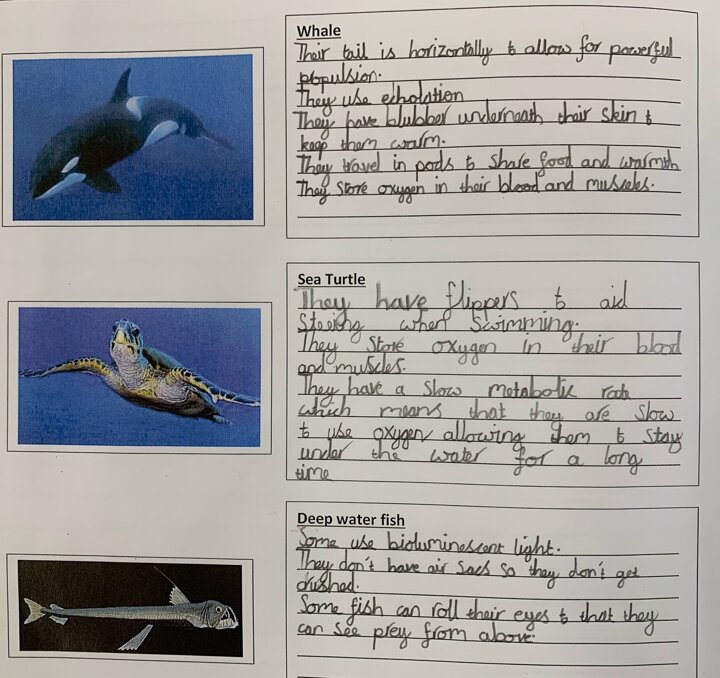 Whale
Their tail is horizontally to allow for powerful
propulsion.
They use echolation
They have blubber underneath their skin to
keep them warm.
They travel in pods to share food and warmth
They store oxygen in their blood and muscles.
Sea Turtle
They have flippers to aid
Steering when swimming.
They store oxygen in their blood
and muscles.
They have a slow metabolic rate
which means that they are slow
to use oxygen allowing them to stay
under the water for a long
time
Deep water fish
Some use bioluminescent light.
They don't have air sacs so they don't get
crushed.
Some fish can roll their eyes to that they
can see prey from above.